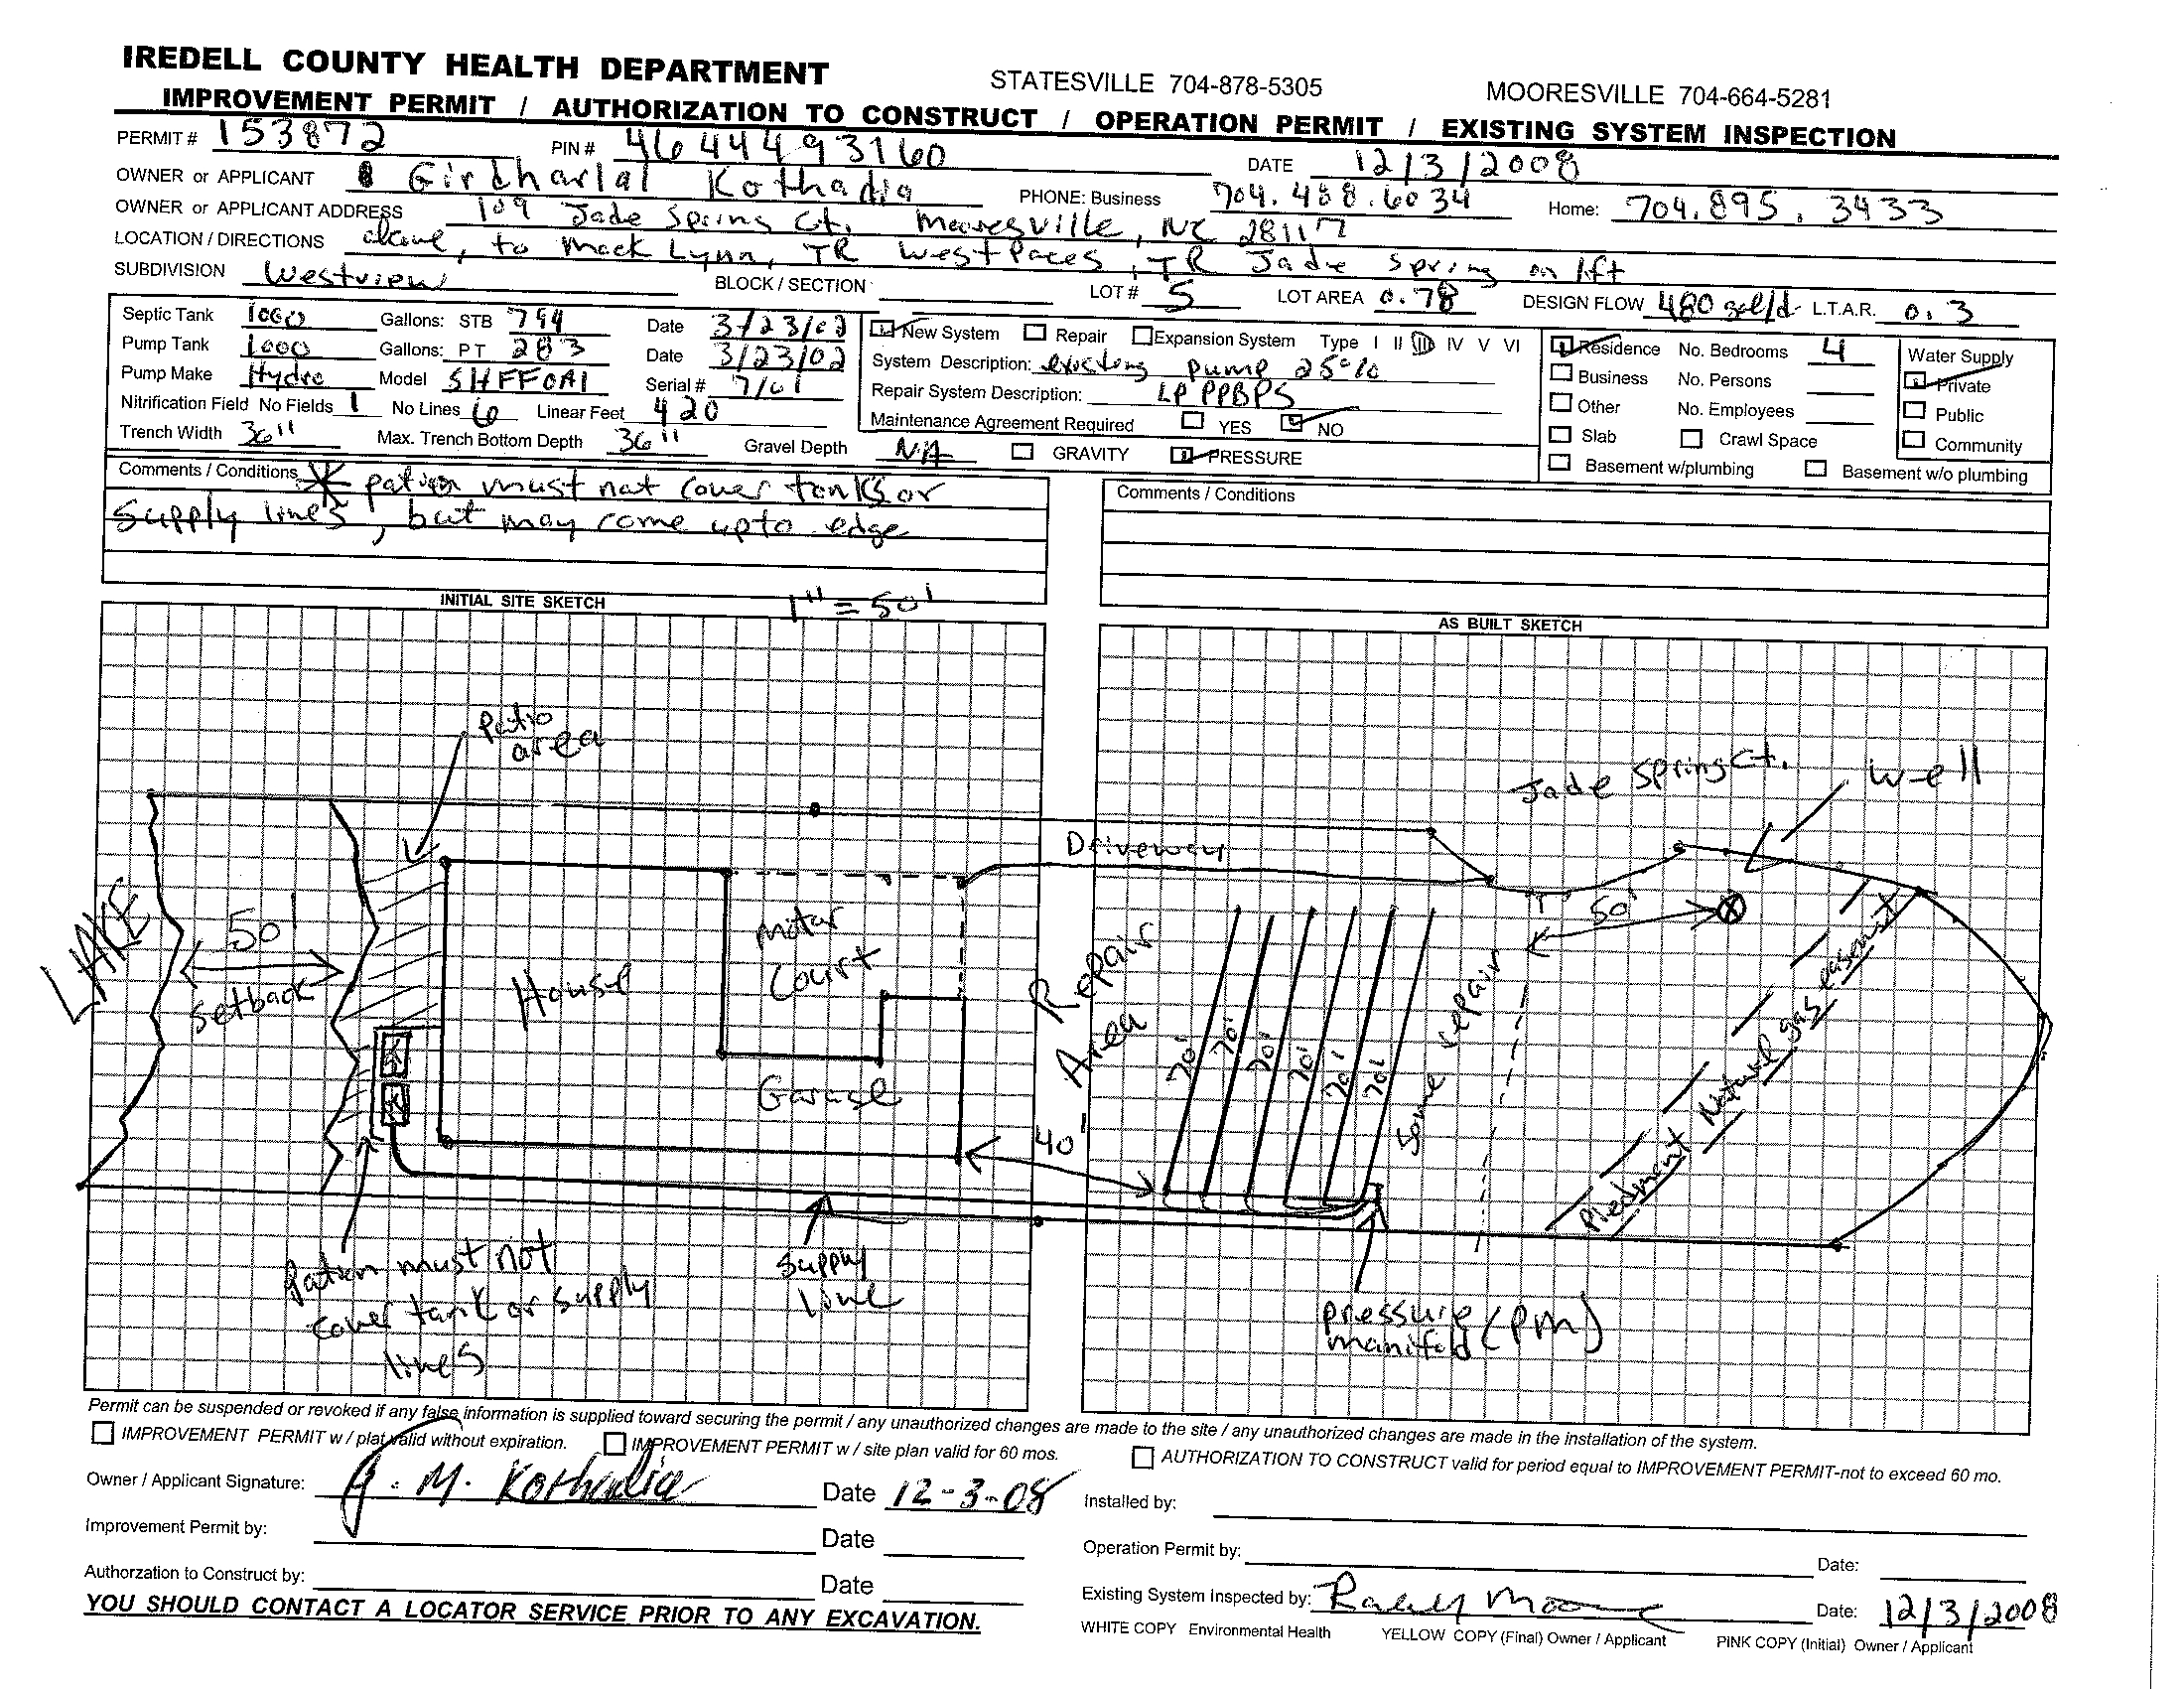 IREDELL COUNTY HEALTH DEPARTMENT STATESVILLE 704-878-5305 MOORESVILLE 704-664-5281
IMPROVEMENT PERMIT / AUTHORIZATION TO CONSTRUCT / OPERATION PERMIT / EXISTING SYSTEM INSPECTION
PERMIT # 153872 PIN # 4644493160 DATE 12/3/2008
OWNER or APPLICANT Girdharlal Kothadia PHONE: Business 704.488.6034 Home: 704.895.3433
OWNER or APPLICANT ADDRESS 109 Jade Spring Ct. Mooresville, NC 28117
LOCATION / DIRECTIONS above, to Mack Lynn, TR West Paces, TR Jade Spring on lft
SUBDIVISION Westview BLOCK / SECTION LOT # 5 LOT AREA 0.78 DESIGN FLOW 480 gal/d L.T.A.R. 0.3
Septic Tank 1000 Gallons: STB 794 Date 3/23/02
Pump Tank 1000 Gallons: PT 283 Date 3/23/02
Pump Make Hydro Model SHFFOA1 Serial # 7/01
Nitrification Field No Fields 1 No Lines 6 Linear Feet 420
Trench Width 36" Max. Trench Bottom Depth 36" Gravel Depth NA GRAVITY PRESSURE
New System Repair Expansion System Type I II III IV V VI
System Description: existing pump 25%
Repair System Description: LPPPBPS
Maintenance Agreement Required YES NO
Residence No. Bedrooms 4
Business No. Persons
Other No. Employees
Slab Crawl Space
Basement w/plumbing Basement w/o plumbing
Water Supply
Private
Public
Community
Comments / Conditions * pation must not cover tanks or
supply lines, but may come up to edge
Comments / Conditions
INITIAL SITE SKETCH 1" = 50'
AS BUILT SKETCH
Patio
area
Jade Spring Ct.
Well
Driveway
LAKE
50'
setback
House
Motor
Court
Garage
Repair
Area
40'
70'
70'
70'
70'
70'
70'
Some repair
50'
Piedmont Natural gas easement
Pation must not
cover tank or supply
lines
supply
line
pressure
manifold (PM)
Permit can be suspended or revoked if any false information is supplied toward securing the permit / any unauthorized changes are made to the site / any unauthorized changes are made in the installation of the system.
IMPROVEMENT PERMIT w / plat valid without expiration. IMPROVEMENT PERMIT w / site plan valid for 60 mos. AUTHORIZATION TO CONSTRUCT valid for period equal to IMPROVEMENT PERMIT-not to exceed 60 mo.
Owner / Applicant Signature: G. M. Kothadia Date 12-3-08 Installed by:
Improvement Permit by: Date Operation Permit by: Date:
Authorzation to Construct by: Date Existing System Inspected by: Moore Date: 12/3/2008
YOU SHOULD CONTACT A LOCATOR SERVICE PRIOR TO ANY EXCAVATION.
WHITE COPY Environmental Health YELLOW COPY (Final) Owner / Applicant PINK COPY (Initial) Owner / Applicant